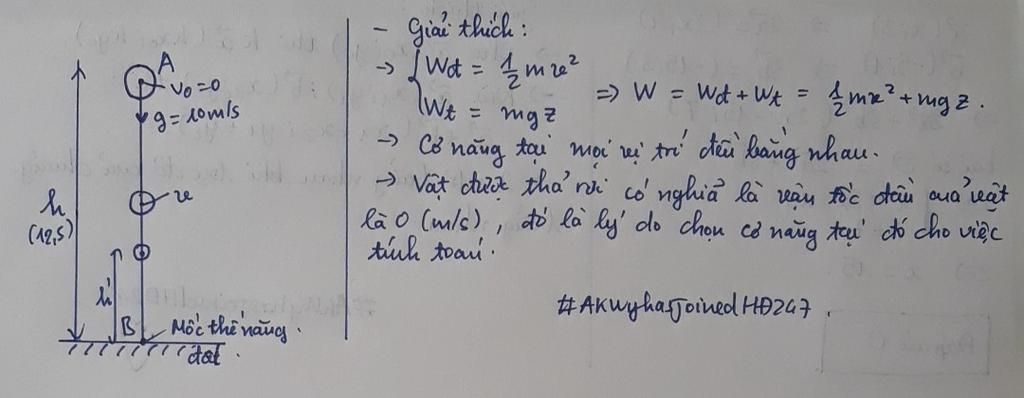 A
v₀=0
g=10m/s
v
h
(12,5)
h'
B
Mốc thế năng.
đất.
- Giải thích:
→ { Wđ = 1/2 mv²
Wt = mgz
⇒ W = Wđ + Wt = 1/2 mv² + mgz.
→ Cơ năng tại mọi vị trí đều bằng nhau.
→ Vật được thả rơi có nghĩa là vận tốc đầu của vật
là 0 (m/s), đó là lý do chọn cơ năng tại đó cho việc
tính toán.
#AKwyhasJoinedHĐ247.